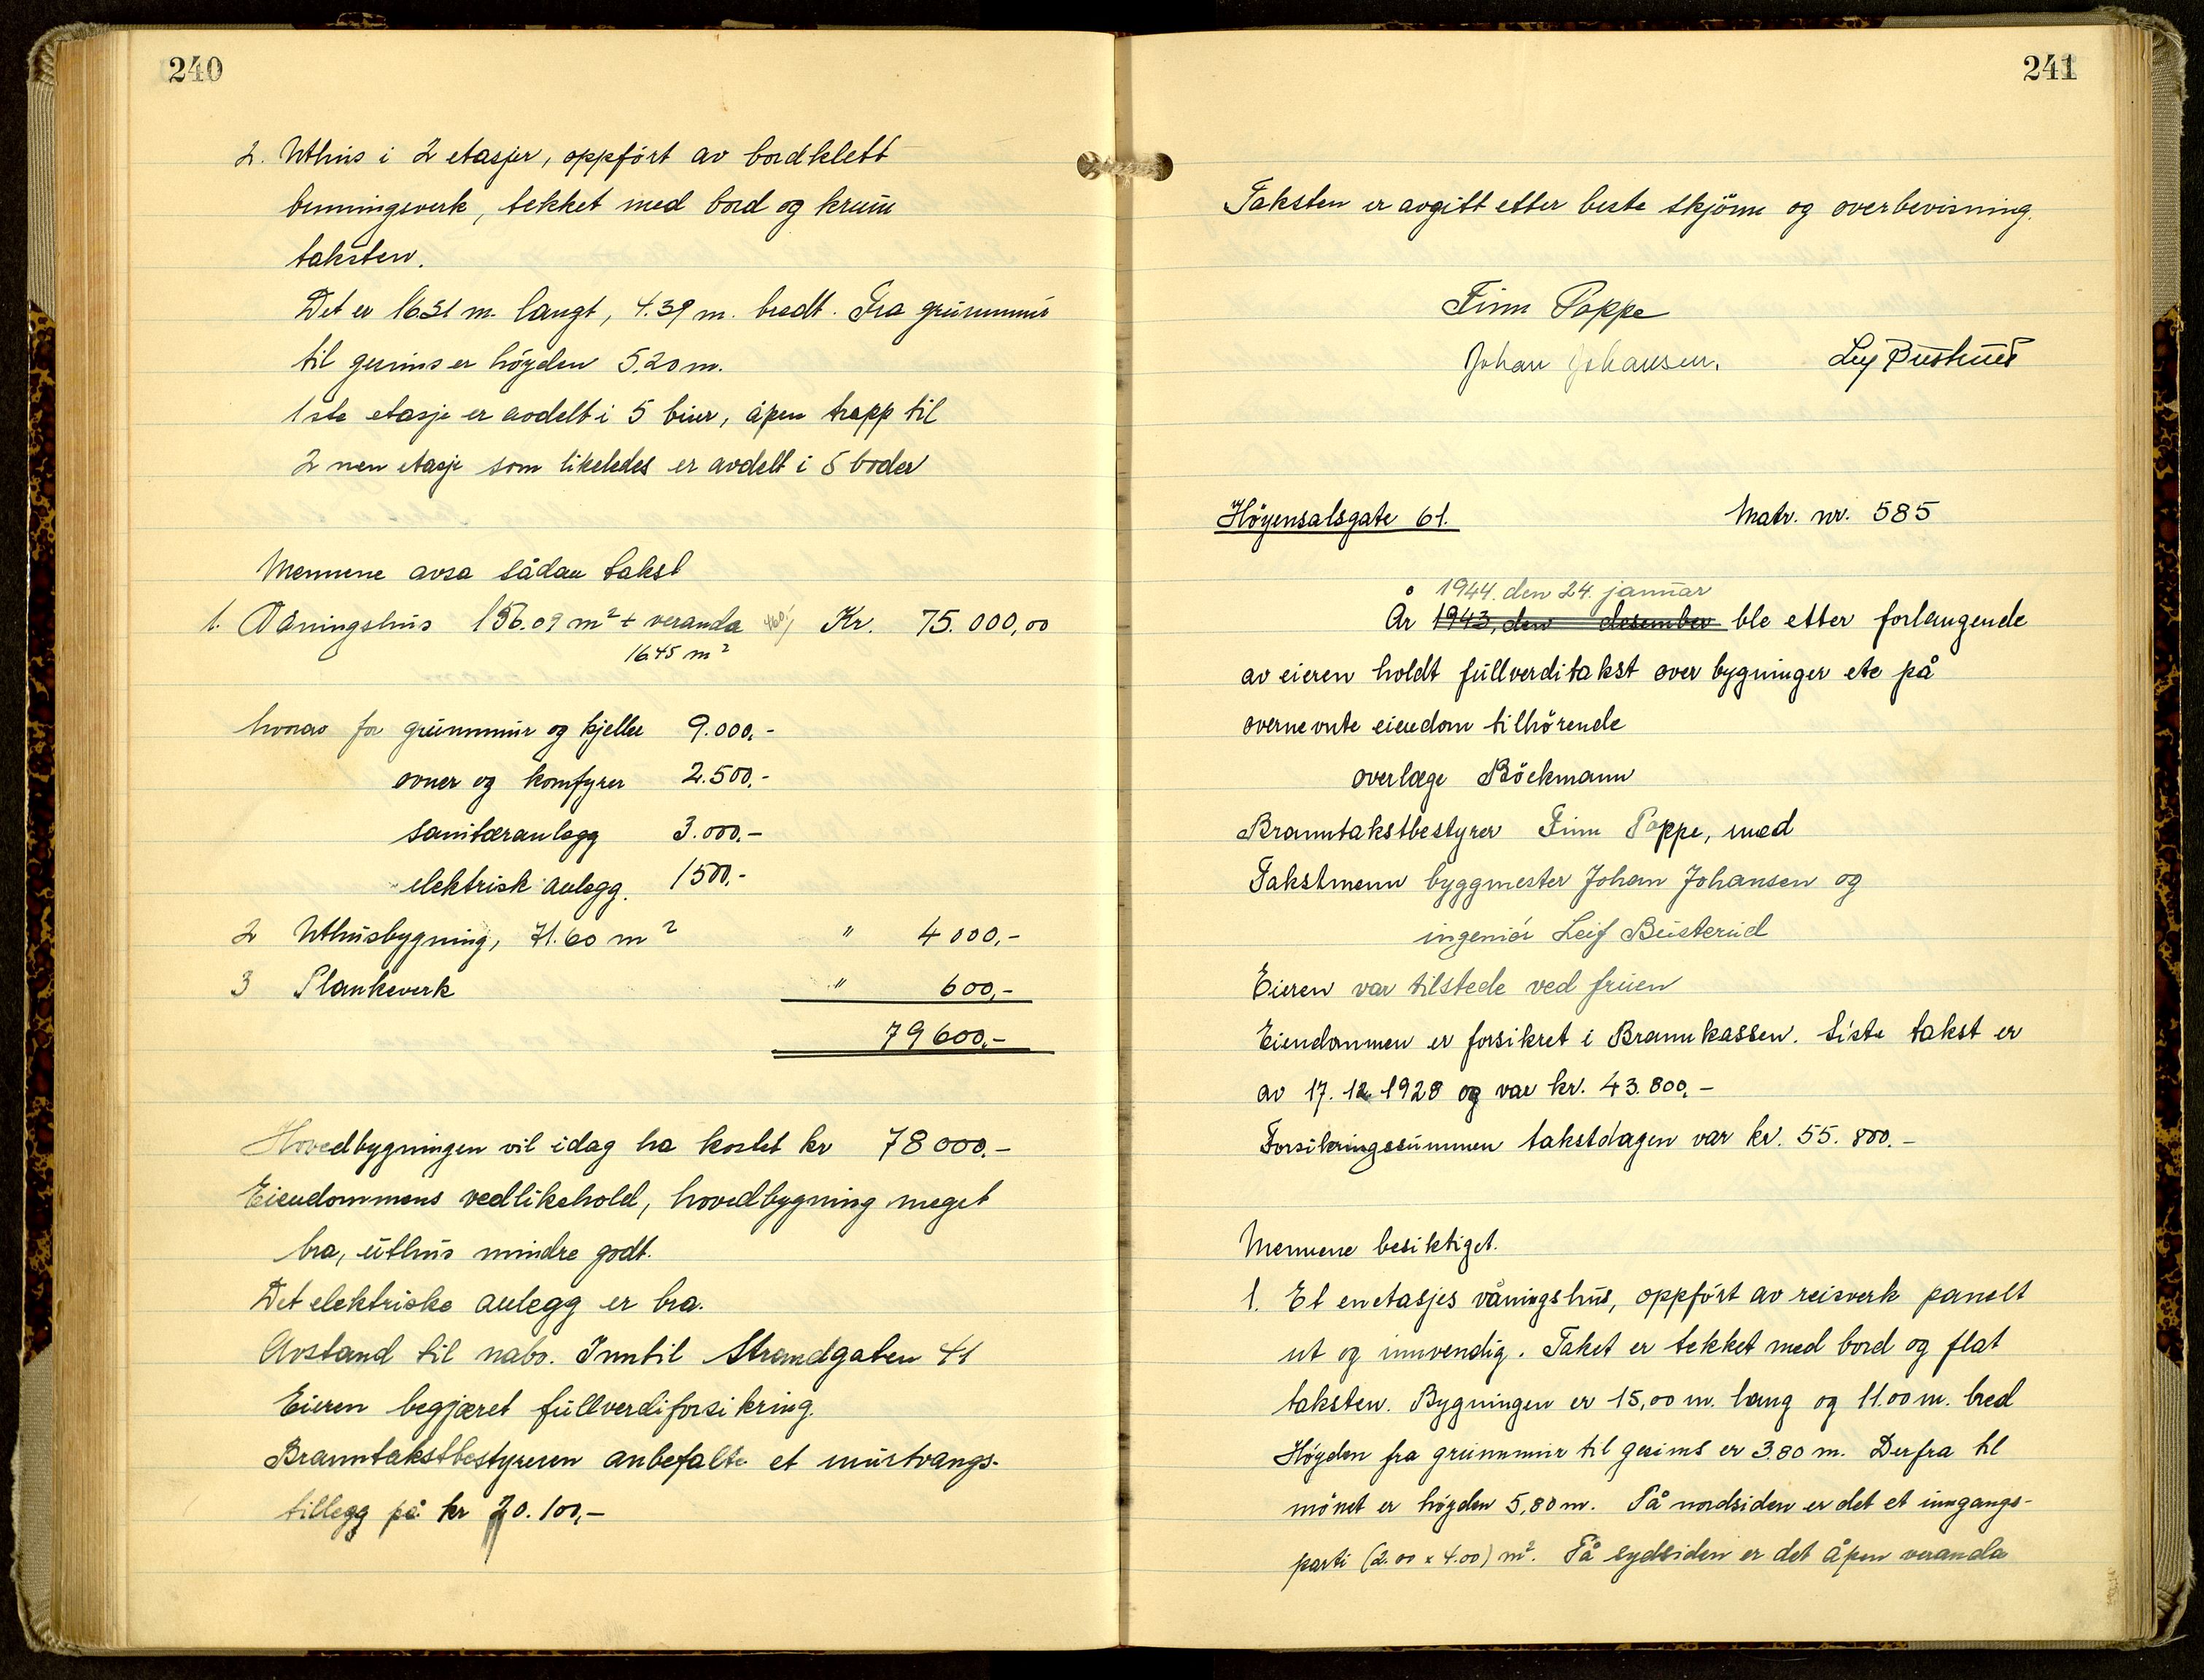 240
2. Uthus i 2 etasjer, oppført av bordklett
binningsverk, tekket med bord og krum
taksten.
Det er 16.31 m. langt, 4.39 m. bredt. Fra grunnmur
til gesims er høyden 5.20 m.
1ste etasje er avdelt i 5 biner, åpen trapp til
2 nen etasje som likeledes er avdelt i 5 boder
Mennene avsa sådan takst
1. Våningshus 156.09 m² + veranda 460/ Kr. 75.000,00
16.45 m²
hvorav for grunnmur og kjeller 9.000.-
ovner og komfyrer 2.500.-
sanitæranlegg 3.000.-
elektrisk anlegg. 1500,-
2 Uthusbygning, 71.60 m² " 4 000,-
3 Plankeverk " 600,-
79 600,-
Hovedbygningen vil idag ha kostet kr 78 000.-
Eiendommens vedlikehold, hovedbygning meget
bra, uthus mindre godt.
Det elektriske anlegg er bra.
Avstand til nabo. Inntil Strandgaten 41
Eieren begjæret fullverdiforsikring.
Branntakstbestyreren anbefalte et murtvangs-
tillegg på kr 20.100,-
241
Taksten er avgitt etter beste skjønn og overbevisning.
Finn Poppe
Johan Johansen. Leif Busterud
Höyensalsgate 61. Matr. nr. 585
1944. den 24. januar
År 1943, den desember ble etter forlangende
av eieren holdt fullverditakst over bygninger etc på
overnevnte eiendom tilhörende
overlæge Böckmann
Branntakstbestyrer Finn Poppe, med
Takstmenn byggmester Johan Johansen og
ingeniör Leif Busterud
Eieren var tilstede ved fruen
Eiendommen er forsikret i Brannkassen. Siste takst er
av 17. 12. 1928 og var kr. 43.800.-
Forsikringssummen takstdagen var kr. 55.800.-
Mennene besiktiget.
1. Et enetasjes våningshus, oppfört av reisverk panelt
ut og innvendig. Taket er tekket med bord og flat
taksten. Bygningen er 15,00 m. lang og 11.00 m. bred
Höyden fra grunnmur til gesims er 3.80 m. Derfra til
mönet er höyden 5,80 m. På nordsiden er det et inngangs-
parti (2.00 x 4.00) m². På sydsiden er det åpen veranda